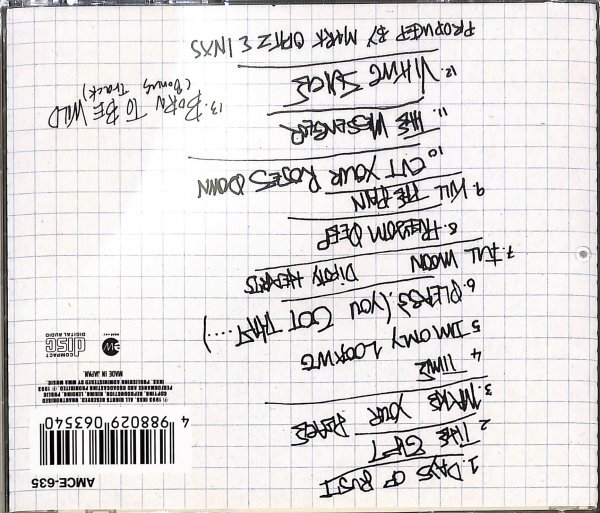 1. DAYS OF RUST
2. THE GIFT
3. MAKE YOUR PEACE
4 TIME
5 IM ONLY LOOKING
6. PLEASE (YOU GOT THAT ....)
7. FULL MOON DIRTY HEARTS
8. FREEDOM DEEP
9. KILL THE PAIN
10. CUT YOUR ROSES DOWN
11. THE MESSENGER
12. VIKING JUICE
PRODUCED BY MARK OPITZ & INXS
13. BORN TO BE WILD
(Bonus Track)
AMCE-635
4 988029 063540
1993 INXS. ALL RIGHTS RESERVED. UNAUTHORISED
COPYING, REPRODUCTION, HIRING, LENDING, PUBLIC
PERFORMANCE AND BROADCASTING PROHIBITED. 1993
INXS PUBLISHING ADMINISTERED BY MMA MUSIC.
MADE IN JAPAN
COMPACT
disc
DIGITAL AUDIO